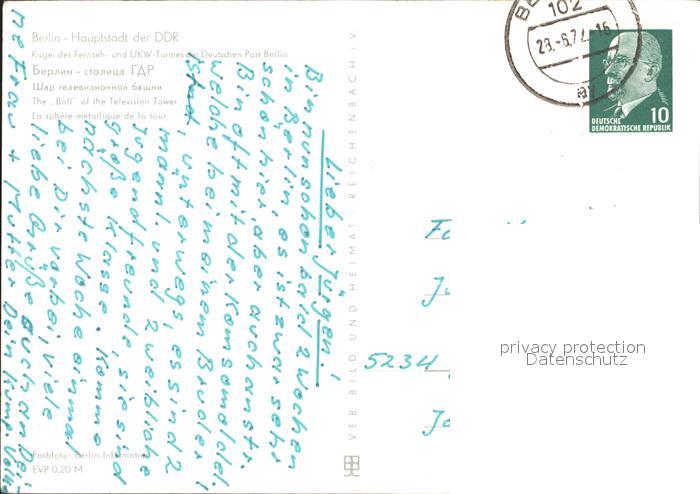 Berlin - Hauptstadt der DDR
Kugel des Fernseh- und UKW-Turmes der Deutschen Post Berlin
Берлин - столица ГДР
Шар телевизионной башни
The „Ball" of the Television Tower
La sphère métallique de la tour
Lieber Jürgen!
Bin nun schon bald 2 Wochen
in Berlin, es ist zwar sehr
schön hier, aber auch anstr.
Bin oft mit der Komsomoldel.
welche bei meinem Bruder
ist, unterwegs, es sind 2
männl. und 2 weibliche
Jugendfreunde, sie sind
große Klasse. Komme
nächste Woche einmal
bei Dir vorbei, viele
liebe Grüße auch an Dei-
ne Frau + Mutter Dein
Farbfoto: Berlin-Information
EVP 0,20 M
VEB BILD UND HEIMAT REICHENBACH i. V.
102
29.-6.72.-16
DEUTSCHE
DEMOKRATISCHE REPUBLIK
10
5234
privacy protection
Datenschutz